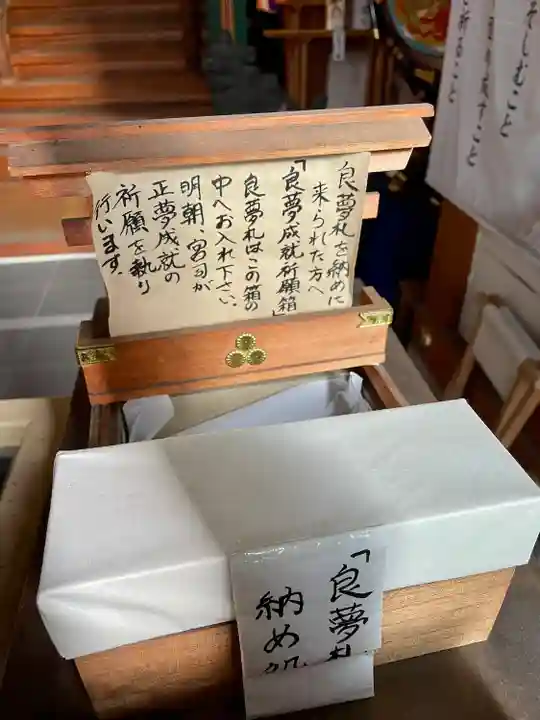 良夢札を納めに
来られた方へ
「良夢成就祈願箱」
良夢札はこの箱の
中へお入れ下さい。
明朝、宮司が
正夢成就の
祈願を執り
行います。
「良夢札
納め処
そしむこと
成すこと
を祈ること